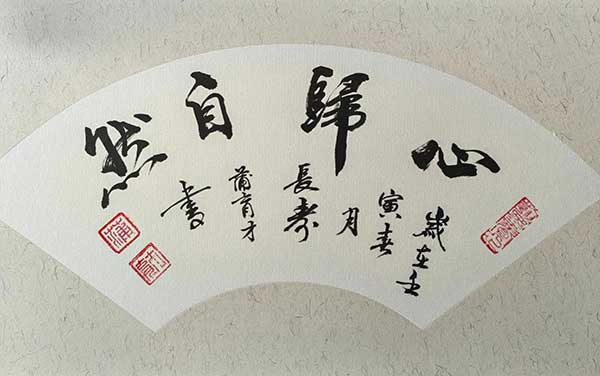 心歸自然
歲在壬
寅春
月
長壽
蒲育才
書